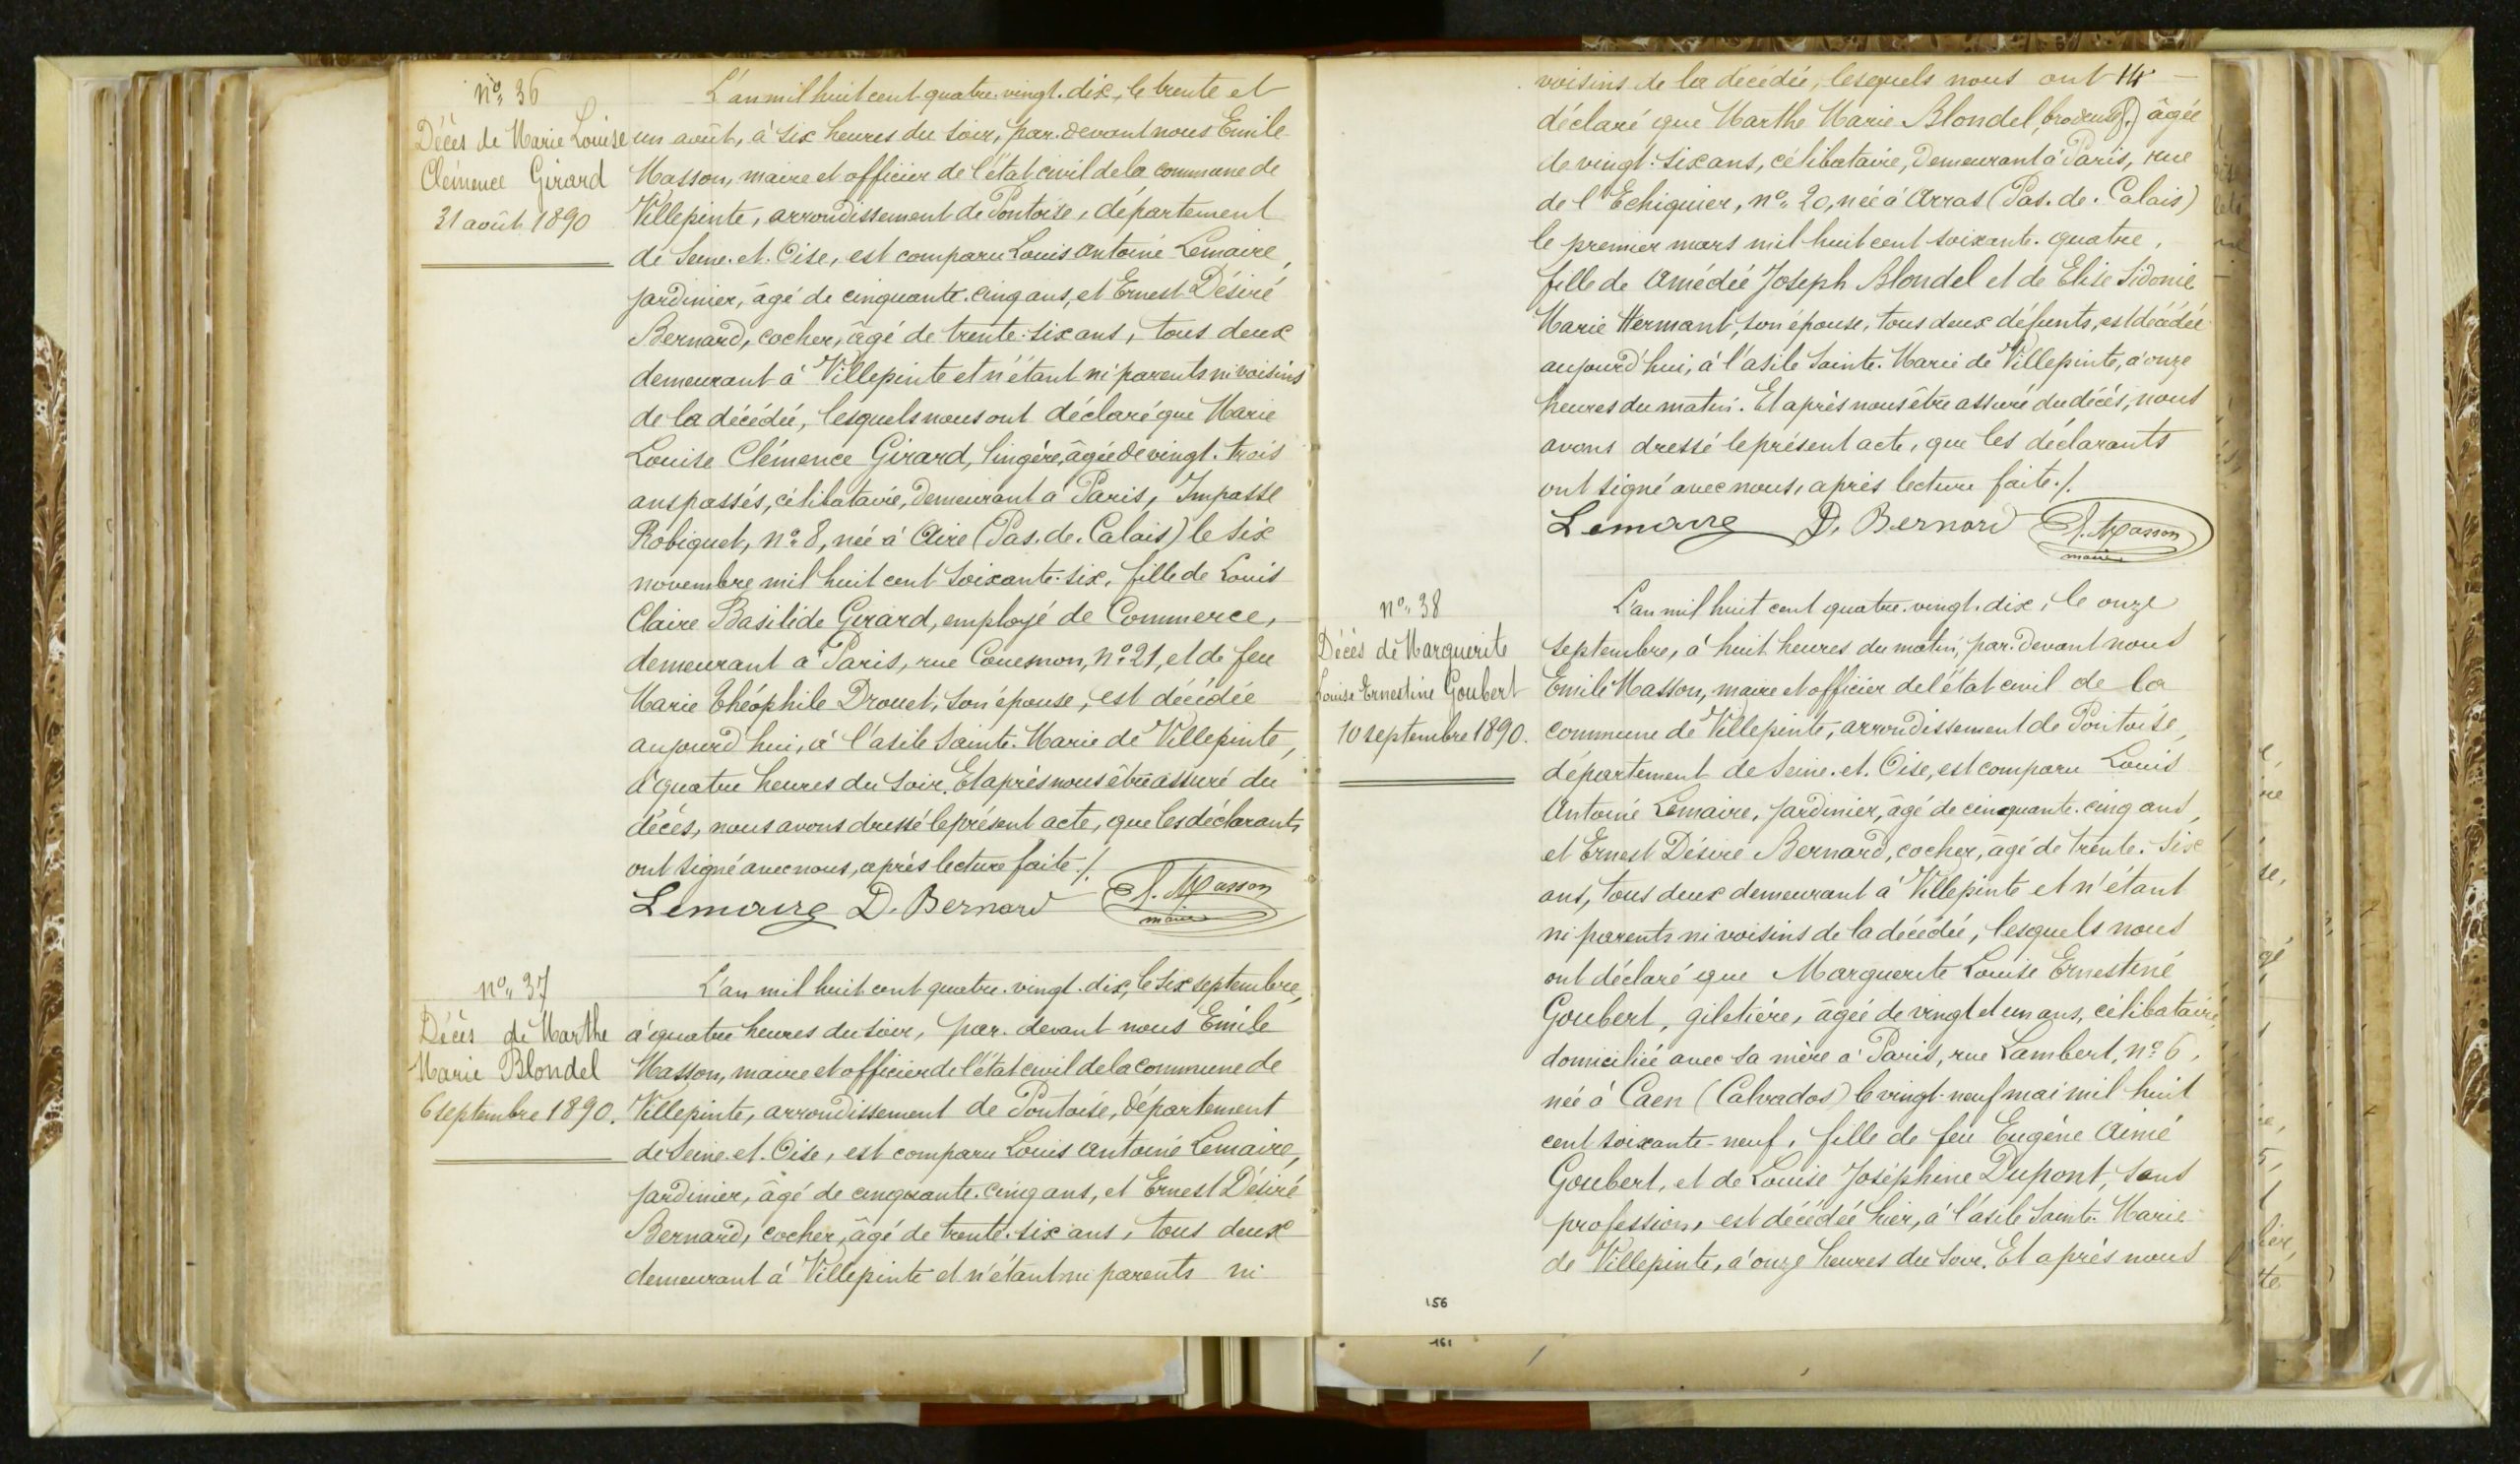 n° 36
Décès de Marie Louise
Clémence Girard
31 août 1890
L'an mil huit cent quatre-vingt-dix, le trente et
un août, à six heures du soir, par-devant nous Emile
Masson, maire et officier de l'état civil de la commune de
Villepinte, arrondissement de Pontoise, département
de Seine-et-Oise, est comparu Louis Antoine Lemaire,
jardinier, âgé de cinquante-cinq ans, et Ernest Désiré
Bernard, cocher, âgé de trente-six ans, tous deux
demeurant à Villepinte et n'étant ni parents ni voisins
de la décédée, lesquels nous ont déclaré que Marie
Louise Clémence Girard, lingère, âgée de vingt-trois
ans passés, célibataire, demeurant à Paris, Impasse
Robiquet, n° 8, née à Aire (Pas-de-Calais) le six
novembre mil huit cent soixante-six, fille de Louis
Claire Basilide Girard, employé de Commerce,
demeurant à Paris, rue Couesnon, n° 21, et de feu
Marie Théophile Drouet, son épouse, est décédée
aujourd'hui, à l'asile Sainte-Marie de Villepinte,
à quatre heures du soir. Et après nous être assuré du
décès, nous avons dressé le présent acte, que les déclarants
ont signé avec nous, après lecture faite./.
Lemaire D. Bernard E. Masson
maire
n° 37
Décès de Marthe
Marie Blondel
6 septembre 1890.
L'an mil huit cent quatre-vingt-dix, le six septembre,
à quatre heures du soir, par-devant nous Emile
Masson, maire et officier de l'état civil de la commune de
Villepinte, arrondissement de Pontoise, département
de Seine-et-Oise, est comparu Louis Antoine Lemaire,
jardinier, âgé de cinquante-cinq ans, et Ernest Désiré
Bernard, cocher, âgé de trente-six ans, tous deux
demeurant à Villepinte et n'étant ni parents ni
voisins de la décédée, lesquels nous ont 14
déclaré que Marthe Marie Blondel, brodeuse, âgée
de vingt-six ans, célibataire, demeurant à Paris, rue
de l'Echiquier, n° 20, née à Arras (Pas-de-Calais)
le premier mars mil huit cent soixante-quatre,
fille de Amédée Joseph Blondel et de Elise Sidonie
Marie Hermant, son épouse, tous deux défunts, est décédée
aujourd'hui, à l'asile Sainte-Marie de Villepinte, à onze
heures du matin. Et après nous être assuré du décès, nous
avons dressé le présent acte, que les déclarants
ont signé avec nous, après lecture faite./.
Lemaire D. Bernard E. Masson
maire
n° 38
Décès de Marguerite
Louise Ernestine Goubert
10 septembre 1890.
L'an mil huit cent quatre-vingt-dix, le onze
septembre, à huit heures du matin, par-devant nous
Emile Masson, maire et officier de l'état civil de la
commune de Villepinte, arrondissement de Pontoise,
département de Seine-et-Oise, est comparu Louis
Antoine Lemaire, jardinier, âgé de cinquante-cinq ans,
et Ernest Désiré Bernard, cocher, âgé de trente-six
ans, tous deux demeurant à Villepinte et n'étant
ni parents ni voisins de la décédée, lesquels nous
ont déclaré que Marguerite Louise Ernestine
Goubert, giletière, âgée de vingt et un ans, célibataire,
domiciliée avec sa mère à Paris, rue Lambert, n° 6,
née à Caen (Calvados) le vingt-neuf mai mil huit
cent soixante-neuf, fille de feu Eugène Aimé
Goubert, et de Louise Joséphine Dupont, sans
profession, est décédée hier, à l'asile Sainte-Marie
de Villepinte, à onze heures du soir. Et après nous
156
161